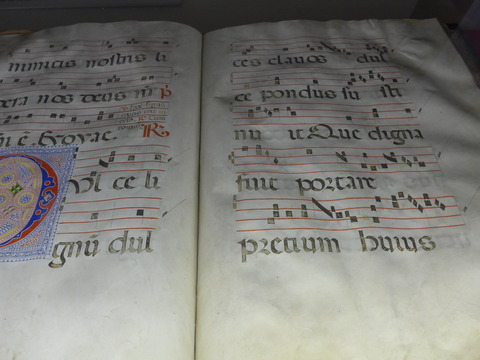 nimicis nostris li
bera nos deus nr̄
Dul ce li
gnū dul
ces clauos dul
ce pondus su sti
nu it Que digna
fuit portare
precium huius